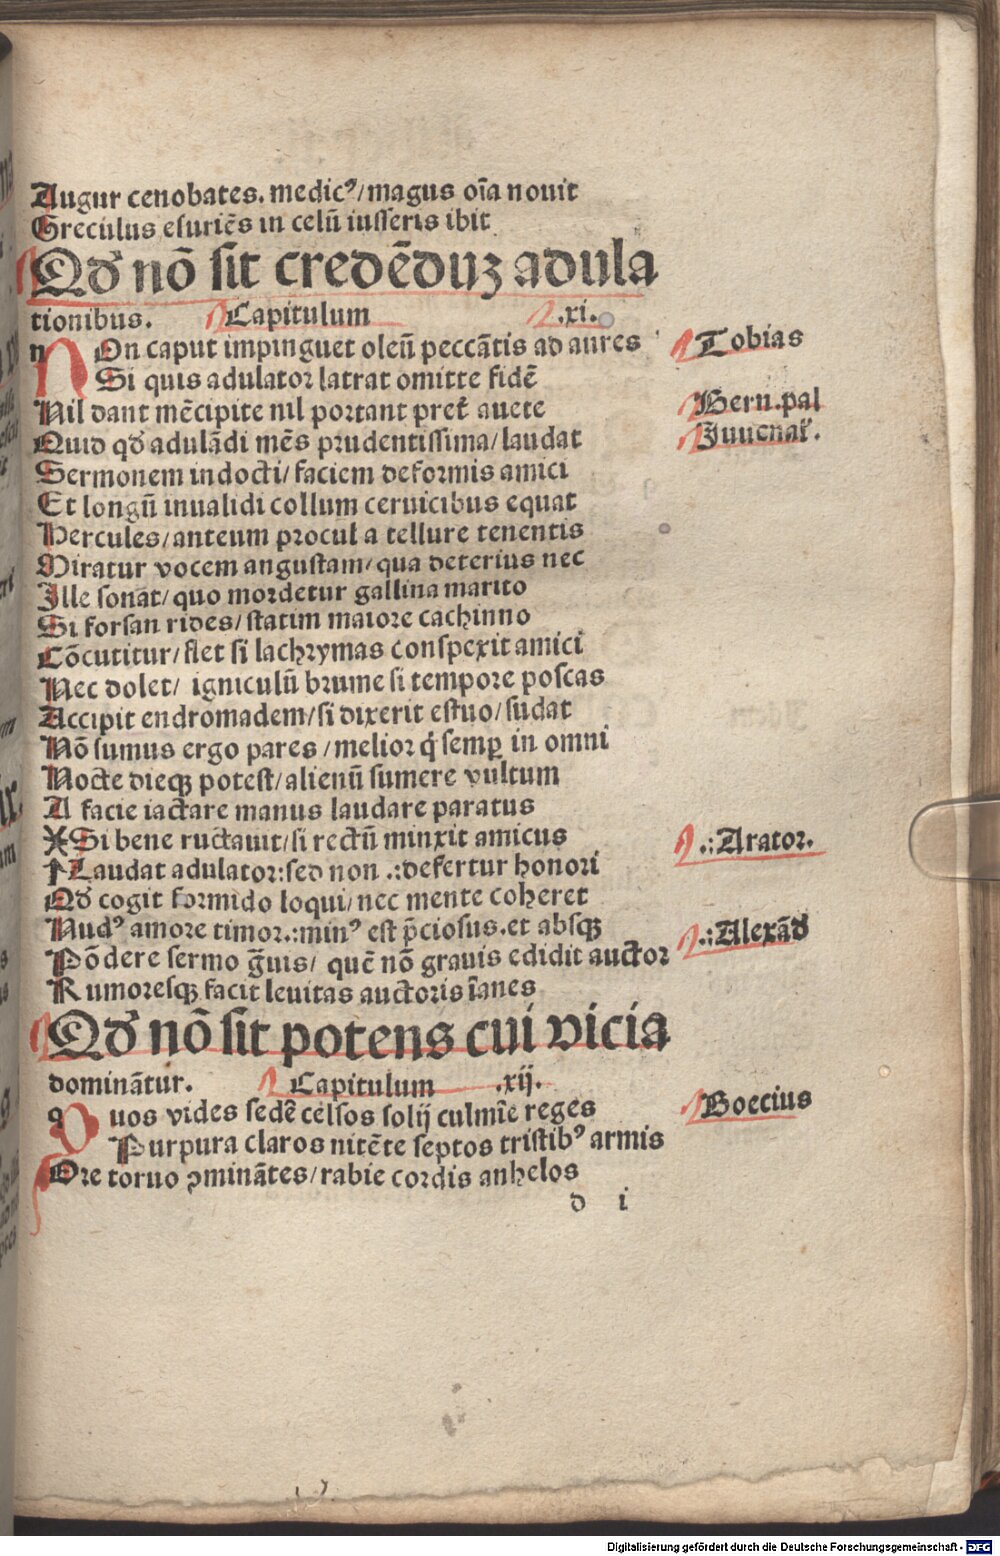 Augur cenobates. medicꝰ/magus oīa nouit
Greculus esuriēs in celū iusseris ibit
Qđ nō sit credēduz adula
tionibus. Capitulum .xi.
nOn caput impinguet oleū peccātis ad aures Tobias
Si quis adulator latrat omitte fidē
Nil dant mēcipite nil portant pret̄ auete Bern.pal
Quid qđ adulādi mēs prudentissima/laudat Juuenal̄.
Sermonem indocti/faciem deformis amici
Et longū inualidi collum ceruicibus equat
Hercules/anteum procul a tellure tenentis
Miratur vocem angustam/qua deterius nec
Ille sonat/quo mordetur gallina marito
Si forsan rides/statim maiore cachinno
Cōcutitur/flet si lachrymas conspexit amici
Nec dolet/ igniculū brume si tempore poscas
Accipit endromadem/si dixerit estuo/sudat
Nō sumus ergo pares /melior q̇ semꝑ in omni
Nocte dieqꝫ potest/alienū sumere vultum
A facie iactare manus laudare paratus
Si bene ructauit/si rectū minxit amicus .:Arator.
Laudat adulator:sed non .:defertur honori
Qđ cogit formido loqui/nec mente coheret
Nudꝰ amore timor.:minꝰ est p̄ciosus.et absqꝫ .:Alexāđ
Pōdere sermo g̅uis/ quē nō grauis edidit auctor
Rumoresqꝫ facit leuitas auctoris īanes
Qđ nō sit potens cui vicia
dominātur. Capitulum .xij.
quos vides sedē celsos solij culmīe reges Boecius
Purpura claros nitēte septos tristibꝰ armis
Ore toruo ꝓmināteſ/rabie cordis anhelos
d i
Digitalisierung gefördert durch die Deutsche Forschungsgemeinschaft - DFG